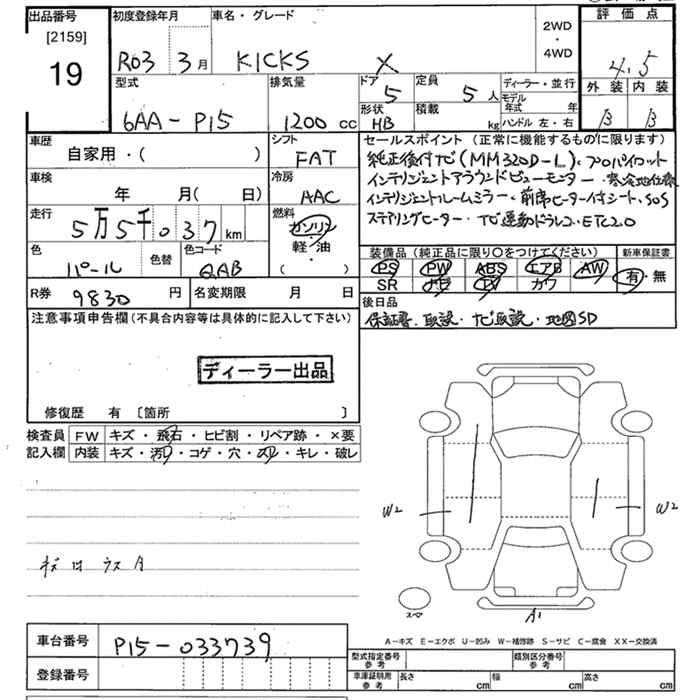 出品番号
[2159]
19
初度登録年月
R03 3月
車名・グレード
KICKS X
2WD
・
4WD
評価点
4.5
外装 内装
B B
型式
6AA-P15
排気量
1200 cc
ドア
5
定員
5人
形状
HB
積載
kg
ディーラー・並行
モデル年式 年
ハンドル 左・右
車歴
自家用・( )
シフト
FAT
車検
年 月( 日)
冷房
AAC
走行
5万5千037km
燃料
ガソリン
軽・油
( )
色
パール
色替
色コード
QAB
R券 9830 円
名変期限 月 日
セールスポイント (正常に機能するものに限ります)
純正後付ナビ(MM320D-L)、プロパイロット
インテリジェントアラウンドビューモニター・寒冷地仕様
インテリジェントルームミラー・前席ヒーター付シート、SOS
ステアリングヒーター・ナビ連動ドラレコ・ETC2.0
装備品(純正品に限り○をつけてください)
新車保証書
PS PW ABS エアB AW
SR ナビ TV カワ
有・無
後日品
保証書、取説・ナビ取説・地図SD
注意事項申告欄(不具合内容等は具体的に記入して下さい)
ディーラー出品
修復歴 有 〔箇所 〕
検査員
記入欄
FW キズ・飛石・ヒビ割・リペア跡・×要
内装 キズ・汚レ・コゲ・穴・スレ・キレ・破レ
W2
W2
A1
スペア
A－キズ E－エクボ U－凹み W－補修跡 S－サビ C－腐食 XX－交換済
車台番号 P15-033739
登録番号
型式指定番号
参考
類別区分番号
参考
車庫証明用
参考
長さ cm
幅 cm
高さ cm